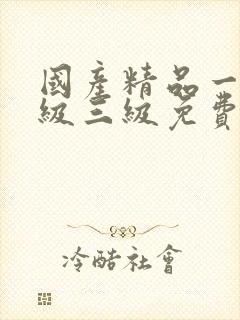 國產精品一
級三級免費
冷酷社會